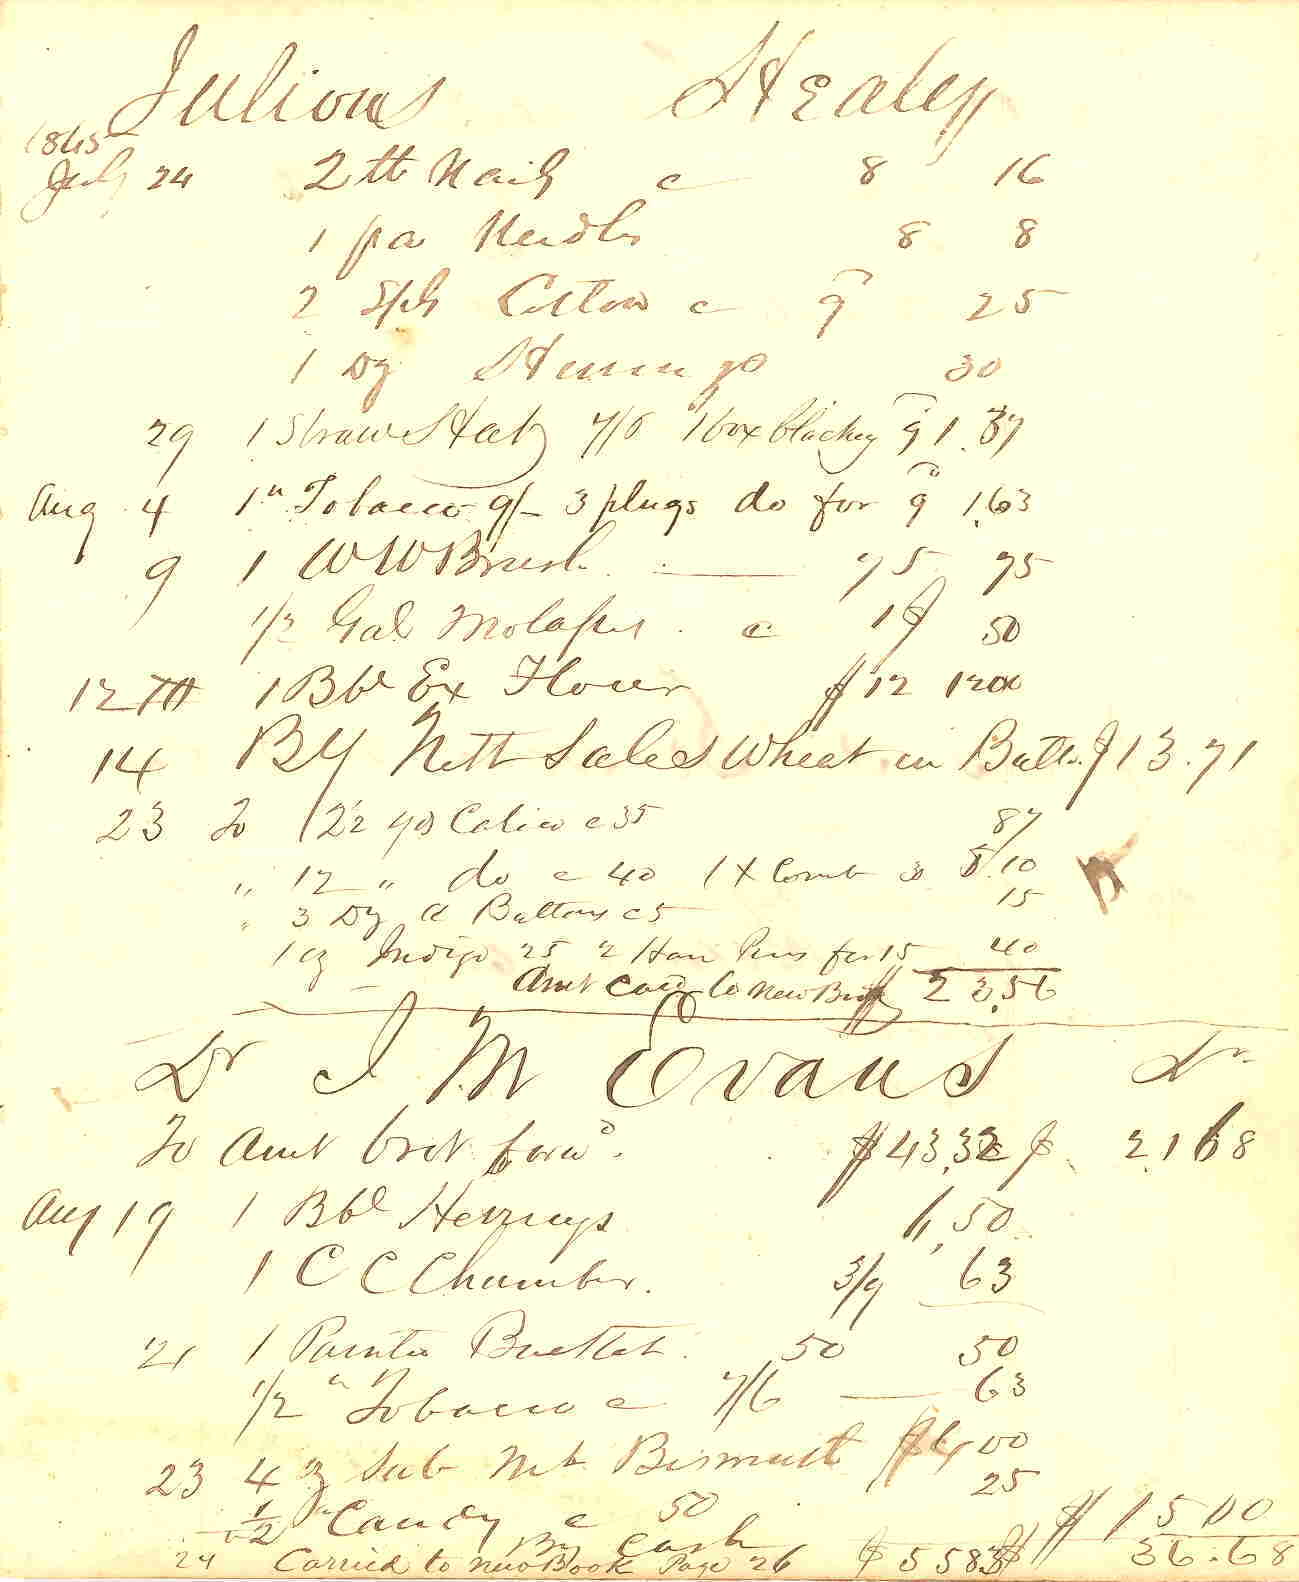 Julious Healey
1865
July 24 2 lb Nails c 8 16
1 pa Needls 8 8
2 Spls Cotton c 9 25
1 Dz Herrings 30
29 1 Straw Hat 7/6 1 box blacking 9 1.37
Aug 4 1 " Tobacco 9/- 3 plugs do for 9 1.63
9 1 W W Brush 75 75
1/2 Gal Molasses c 1$ 50
12 TH 1 Bbl Ex Flour $12 1200
14 By Nett Sales Wheat in Balto $13.71
23 To 2 1/2 yds Calico c 35 87
" 12 " do c 40 1 X Comb 30 5.10
" 3 Dz a Buttons c 5 15
1 oz Indigo 25 2 Hair Pins for 15 40
Amt card to New Book $ 23.56
Dr J M Evans Dr
To Amt brot forwd. $43.32 $ 21.68
Aug 19 1 Bbl Herrings 6,50
1 C C Chamber. 3/9 63
21 1 Painted Bucket. 50 50
1/2 " Tobacco c 7/6 63
23 4 oz Sub Nit Bismuth $ 4,00
25
1/2 " Candy c 50
By Cash $ 15.00
24 Carried to New Book Page 26 $ 55 83 $ 36.68